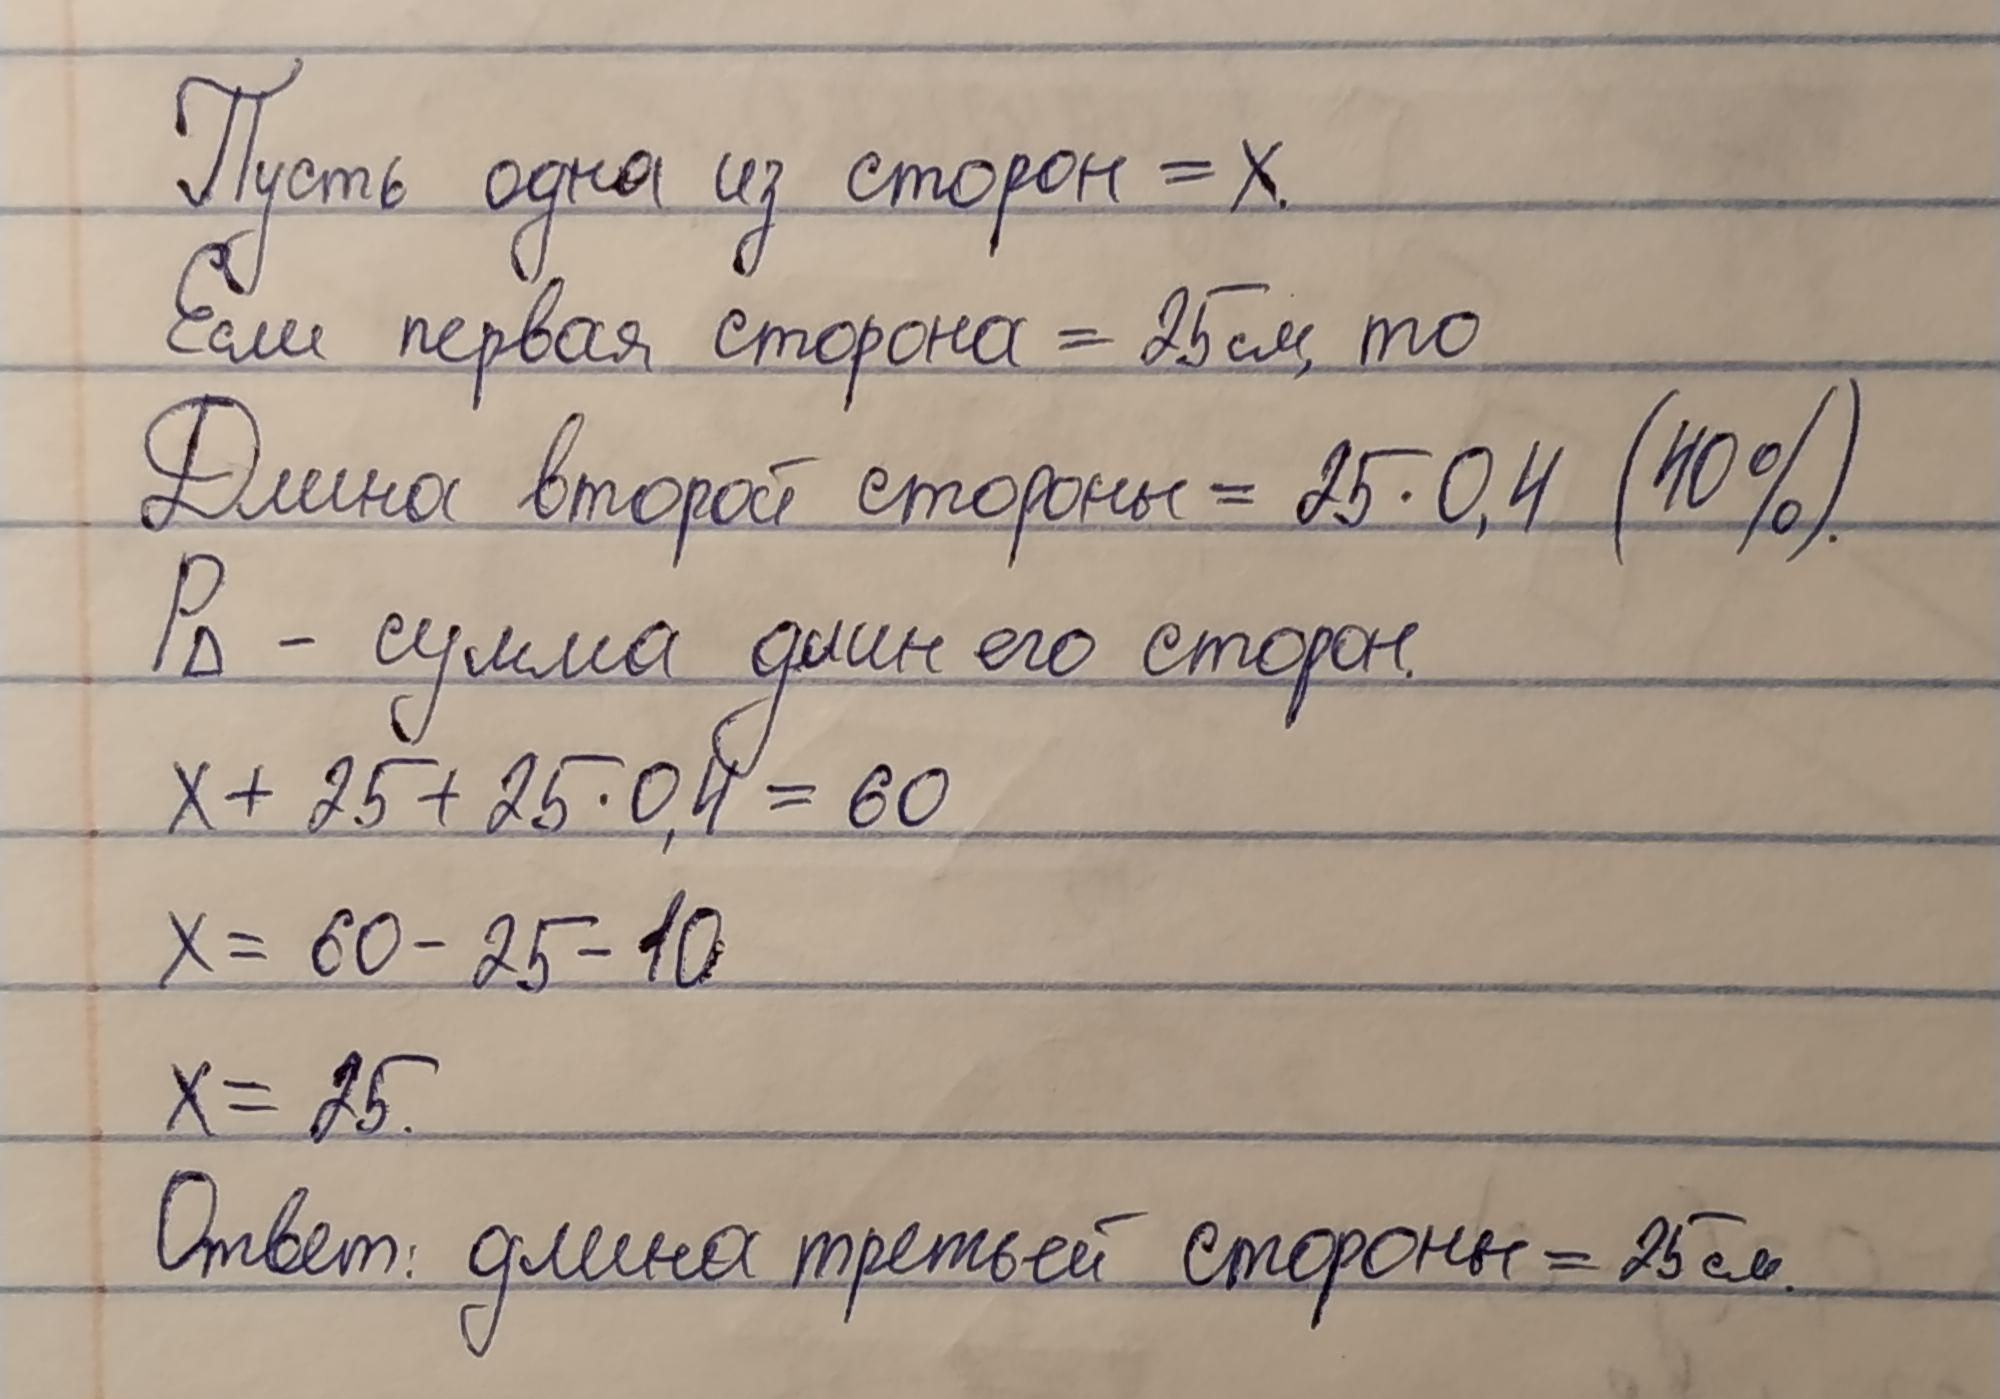 Пусть одна из сторон = х.
Если первая сторона = 25см, то
Длина второй стороны = 25·0,4 (40%).
P△ - сумма длин его сторон.
х + 25 + 25·0,4 = 60
х = 60 - 25 - 10
х = 25.
Ответ: длина третьей стороны = 25см.